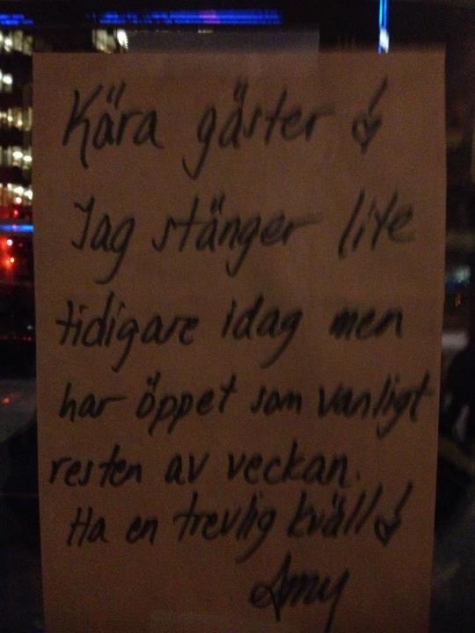 Kära gäster!
Jag stänger lite
tidigare idag men
har öppet som vanligt
resten av veckan.
Ha en trevlig kväll!
Amy